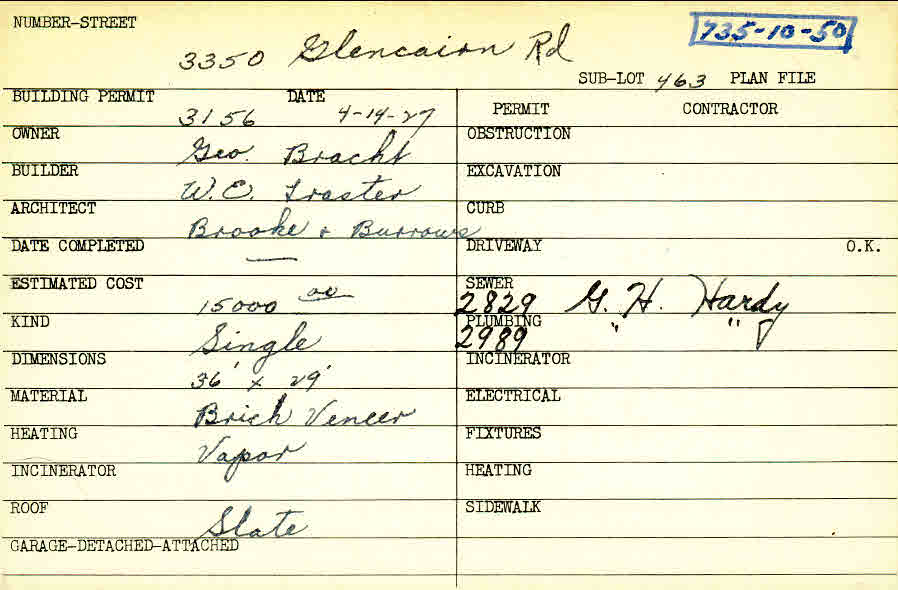 NUMBER-STREET
735-10-50
3350 Glencairn Rd
SUB-LOT 463 PLAN FILE
BUILDING PERMIT DATE
3156 4-14-27
PERMIT CONTRACTOR
OWNER
Geo. Bracht
OBSTRUCTION
BUILDER
W. E. Traster
EXCAVATION
ARCHITECT
Brooke & Burrows
CURB
DATE COMPLETED
—
DRIVEWAY O.K.
ESTIMATED COST
15000 00
SEWER
2829 G. H. Hardy
KIND
Single
PLUMBING
2989 " "
DIMENSIONS
36' x 29'
INCINERATOR
MATERIAL
Brick Veneer
ELECTRICAL
HEATING
Vapor
FIXTURES
INCINERATOR
HEATING
ROOF
Slate
SIDEWALK
GARAGE-DETACHED-ATTACHED